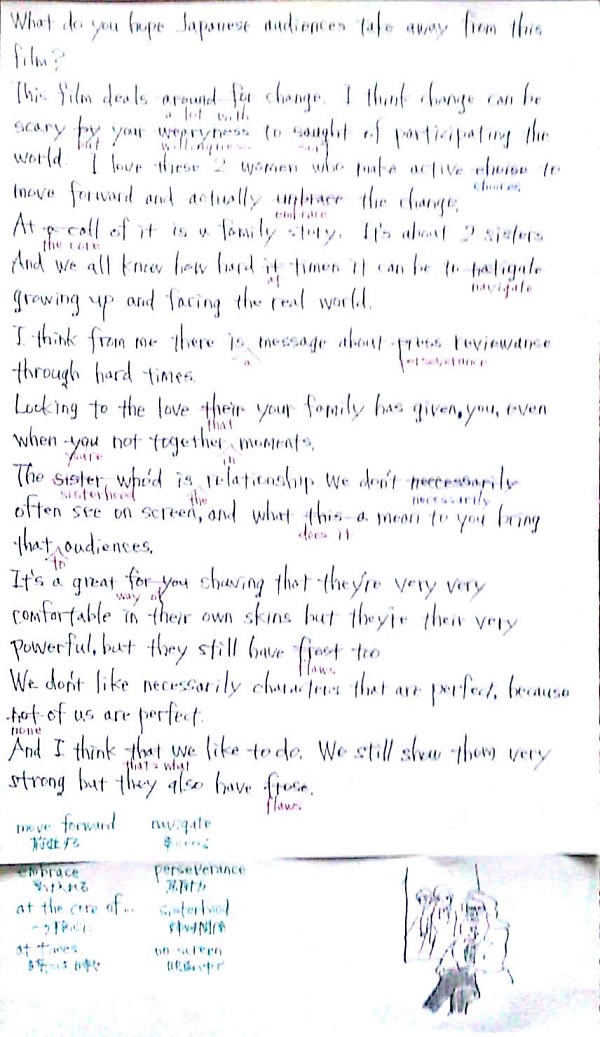 What do you hope Japanese audiences take away from this
film?
This film deals around for change. I think change can be
a lot with
scary by your wepryness to sought of participating the
but willingness sort
world. I love these 2 women who make active choise to
choices
move forward and actually unbrace the change.
embrace
At a call of it is a family story. It's about 2 sisters.
the core
And we all know how hard it times it can be to natigate
at navigate
growing up and facing the real world.
I think from me there is message about press reviewanse
a perseverance
through hard times.
Looking to the love their your family has given, you, even
that
when you not together moments.
you're in
The sister who'd is relationship we don't neccessarily
sisterhood the necessarily
often see on screen, and what this a mean to you bring
does it
that audiences.
to
It's a great for you showing that they're very very
way of
comfortable in their own skins but they're their very
powerful, but they still have frost too
flaws
We don't like necessarily characters that are perfect, because
not of us are perfect.
none
And I think that we like to do. We still show them very
that's what
strong but they also have frose.
flaws
move forward navigate
前進する
embrace perseverance
受け入れる 忍耐力
at the core of... sisterhood
姉妹関係
at times on screen
時には 映画の中で